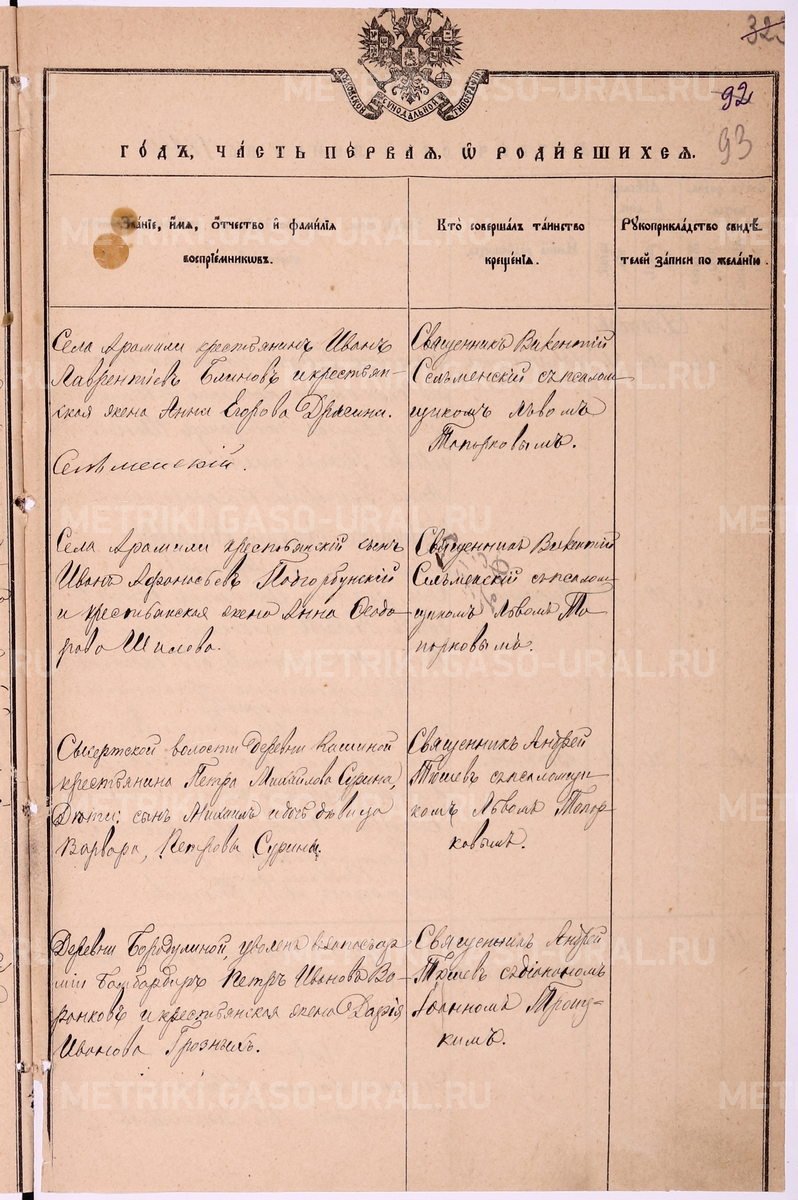 323
92
93
МОСКОВСКОЙ СѴНОДАЛЬНОЙ ТИПОГРАФІИ
ГОДЪ, ЧАСТЬ ПЕРВАЯ, Ѡ РОДИВШИХСЯ.
Званіе, имя, отчество и фамилія
воспріемниковъ.
Кто совершалъ таинство
крещенія.
Рукоприкладство свидѣ-
телей записи по желанію.
Села Арамили крестьянинъ Иванъ
Лаврентіевъ Блиновъ и крестьян-
ская жена Анна Егорова
Селѣменскій.
Священникъ Викентій
Селѣменскій съ псалом-
щикомъ Львомъ
Топорковымъ.
Села Арамили крестьянскій сынъ
Иванъ Афонасьевъ Подгорбунскій
и крестьянская жена Анна Ѳеодо-
рова Шилова.
Священникъ Викентій
Селѣменскій съ псалом-
щикомъ Львомъ То-
порковымъ.
Сысертской волости деревни Кашиной
крестьянина Петра Михайлова Сурина,
Дѣти: сынъ Михаилъ и дочь дѣвица
Варвара, Петровы Сурины.
Священникъ Андрей
съ псаломщи-
комъ Львомъ Топор-
ковымъ.
Деревни Бородулиной уволен. въ запасъ ар-
міи Бомбардиръ Петръ Ивановъ Во-
ронковъ и крестьянская жена Дарія
Иванова Грозныхъ.
Священникъ Андрей
съ діакономъ
Іоанномъ Троиц-
кимъ.
METRIKI.GASO-URAL.RU